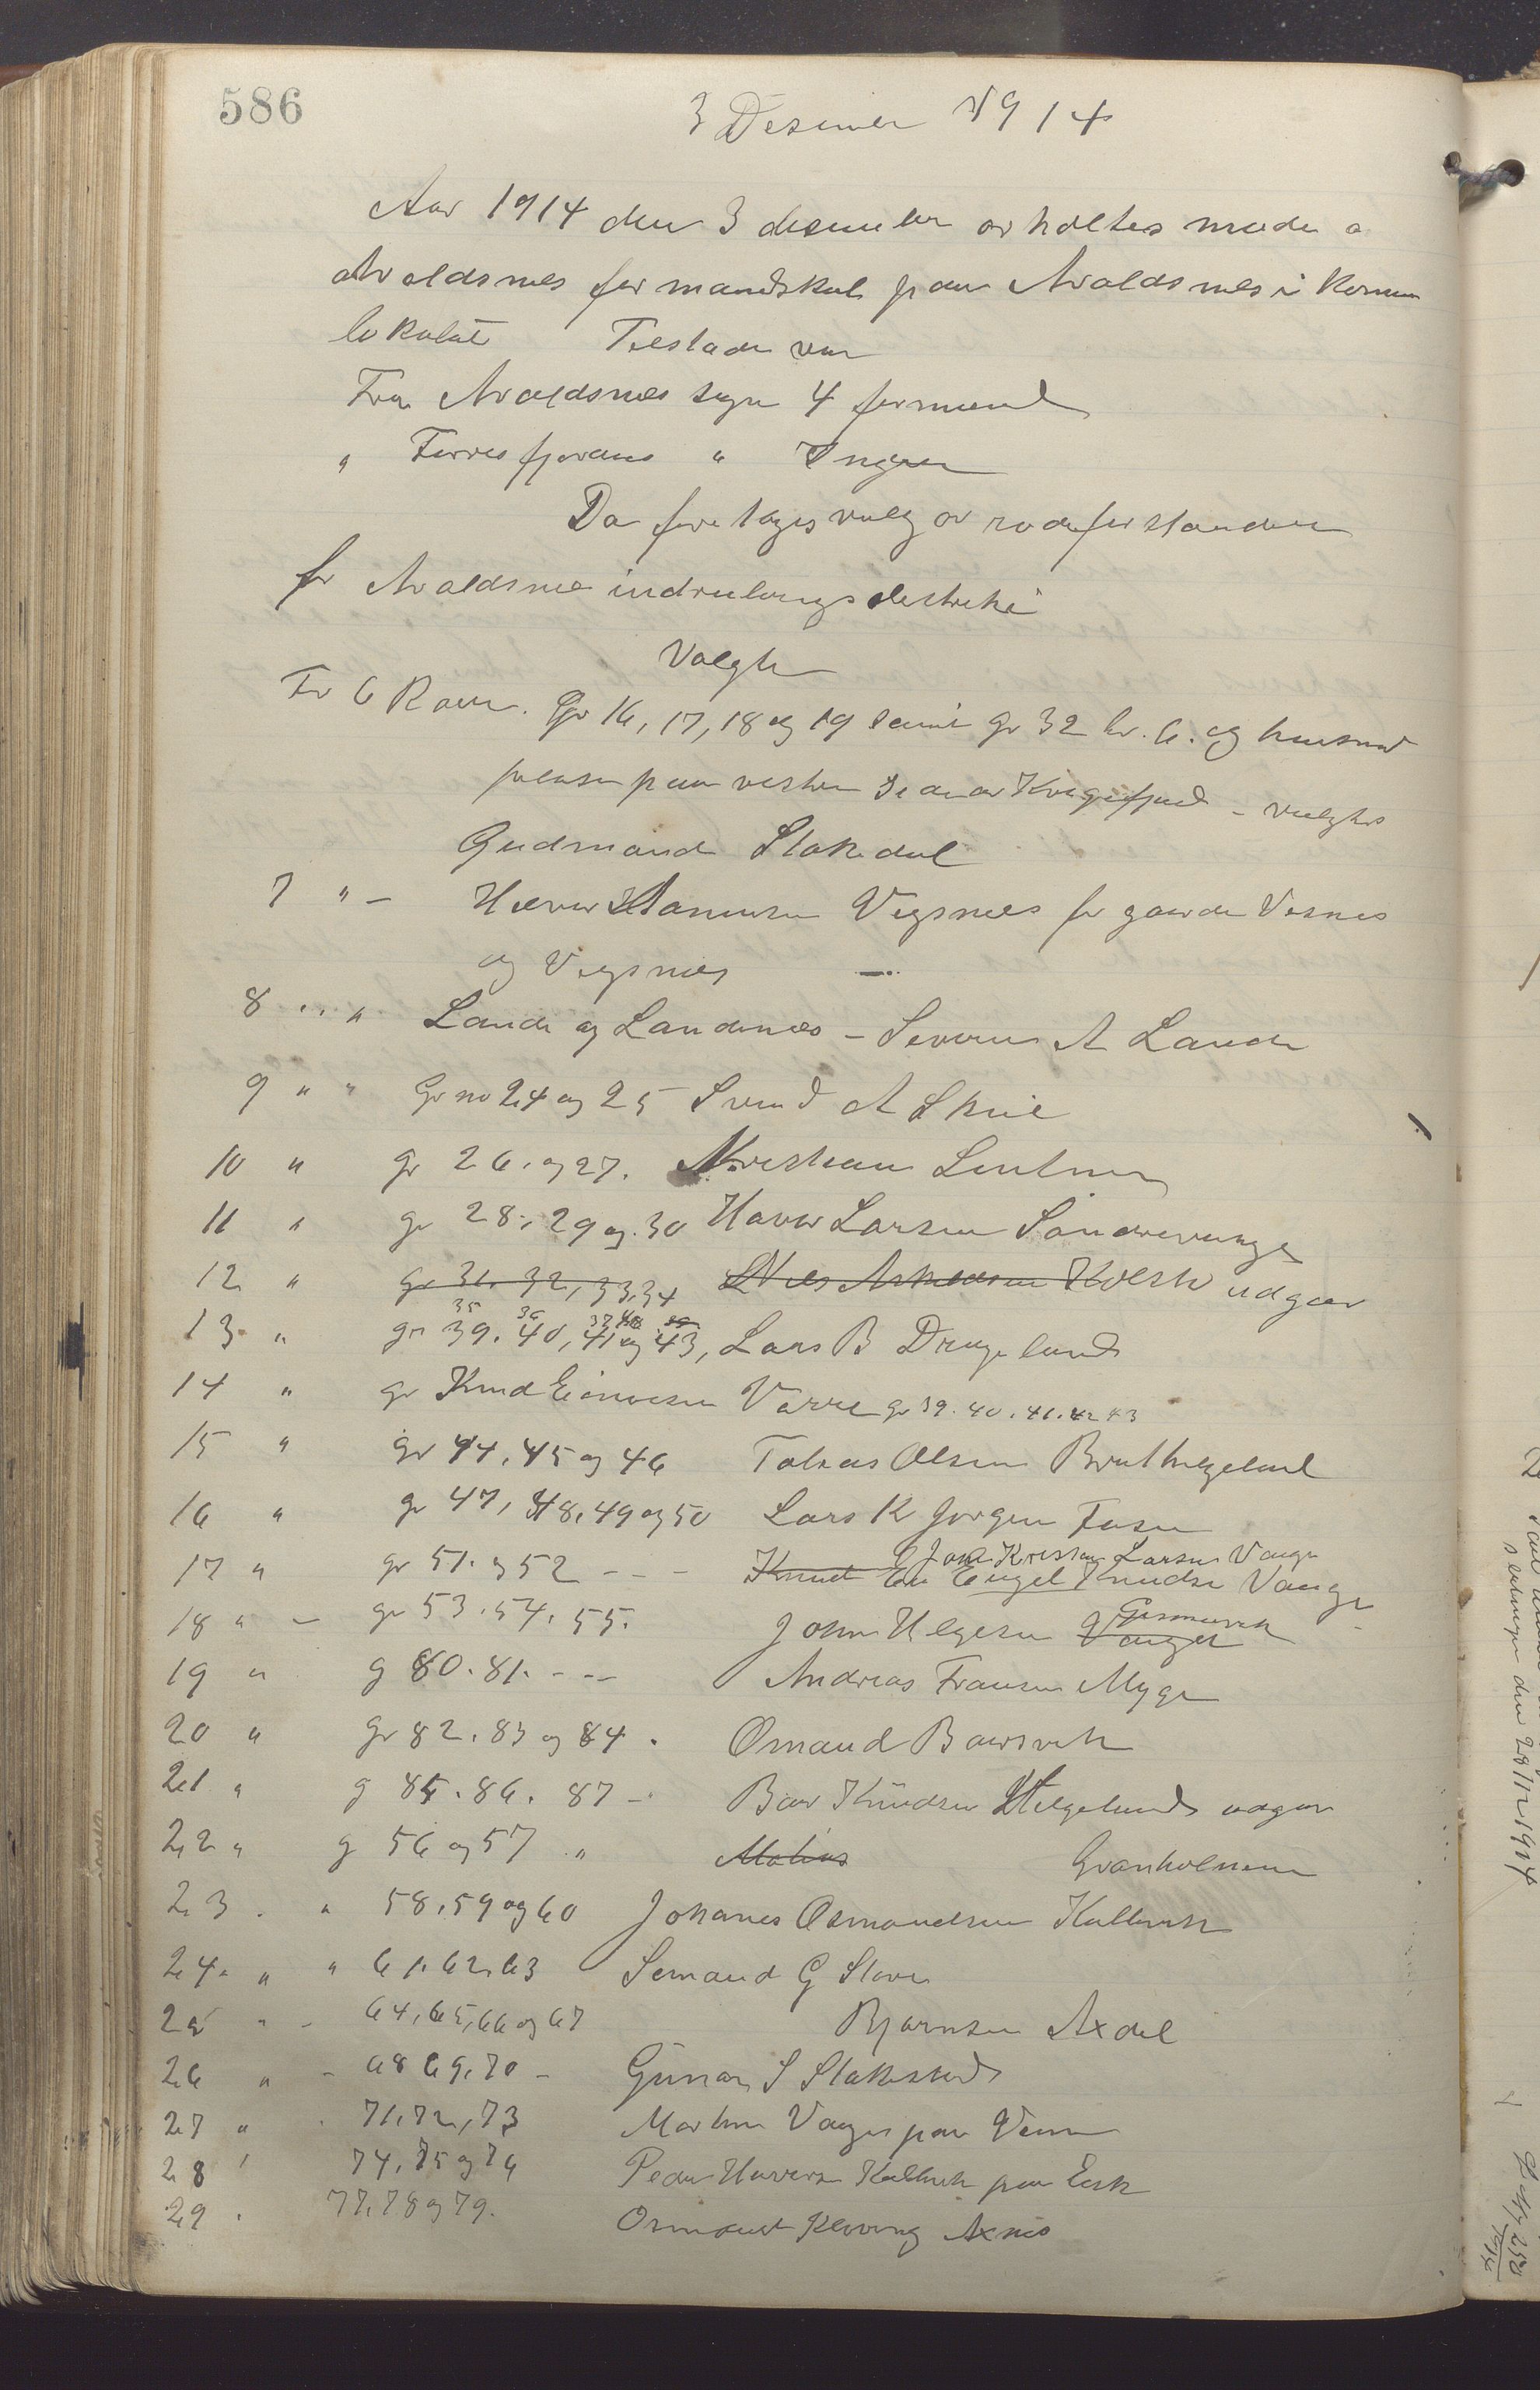 586
3 Desember 1914
Aar 1914 den 3 desember avholtes møde a
Avaldsnes formandskab paa Avaldsnes i Komun
lokalet Tilstade var
Fra Avaldsnes sogn 4 formænd
" Førresfjorden " Ingen
Da foretoges valg av rodeforstandere
for Avaldsnes indrulerings destrikt
Valgte
For 6 Rode. Gr 16, 17, 18 og 19 samt gr 32 br. 6. og husmænd
paa vestre side av - valgtes
Gudmand Stakedal
7 " - Hævar Hansen Vigsnes for gaarde Visnes
og Vigsnes -
8 " " Lande og Landenes - Severin A Lande
9 " " Gr no 24 og 25 Svend A Skeie
10 " gr 26. og 27. Kristian
11 " gr 28, 29 og 30 Havar Larsen Søndrevaage
12 " gr 31, 32, 33, 34 udgaar
35 36 37
13 " gr 39. 40, 41 og 43, Lars B Drageland
14 " gr Knud Einarsen Vorre gr 39. 40. 41. 42 43
15 " gr 44, 45 og 46 Tobias Olsen
16 " gr 47, 48, 49 og 50 Lars K Jørgen Fosen
Larsen Vaage
17 " gr 51. og 52 - - - Knut Engel Knudsen Vaage
18 " - gr 53. 54. 55. John Helgesen Vaage
19 " g 80. 81. - - Andreas Fransen Myge
20 " gr 82. 83 og 84. Osmand Baarsvik
21 " g 85. 86. 87 - Baar Knudsen Helgeland udgaar
22 " g 56 og 57 " Matias Granholmen
23 . " 58, 59 og 60 Johanes Osmandsen Kallevik
24 " " 61. 62. 63 Semand G
25 " - 64, 65, 66 og 67 Bjørnsen Axdal
26 " - 68 69. 70 - Gunnar S Stakkestad
27 " . 71, 72, 73 Martin Vaage paa
28 " 74, 75 og 76 Peder Kallevik paa Eik
29 . 77, 78 og 79. Osmund Kloving Axnes